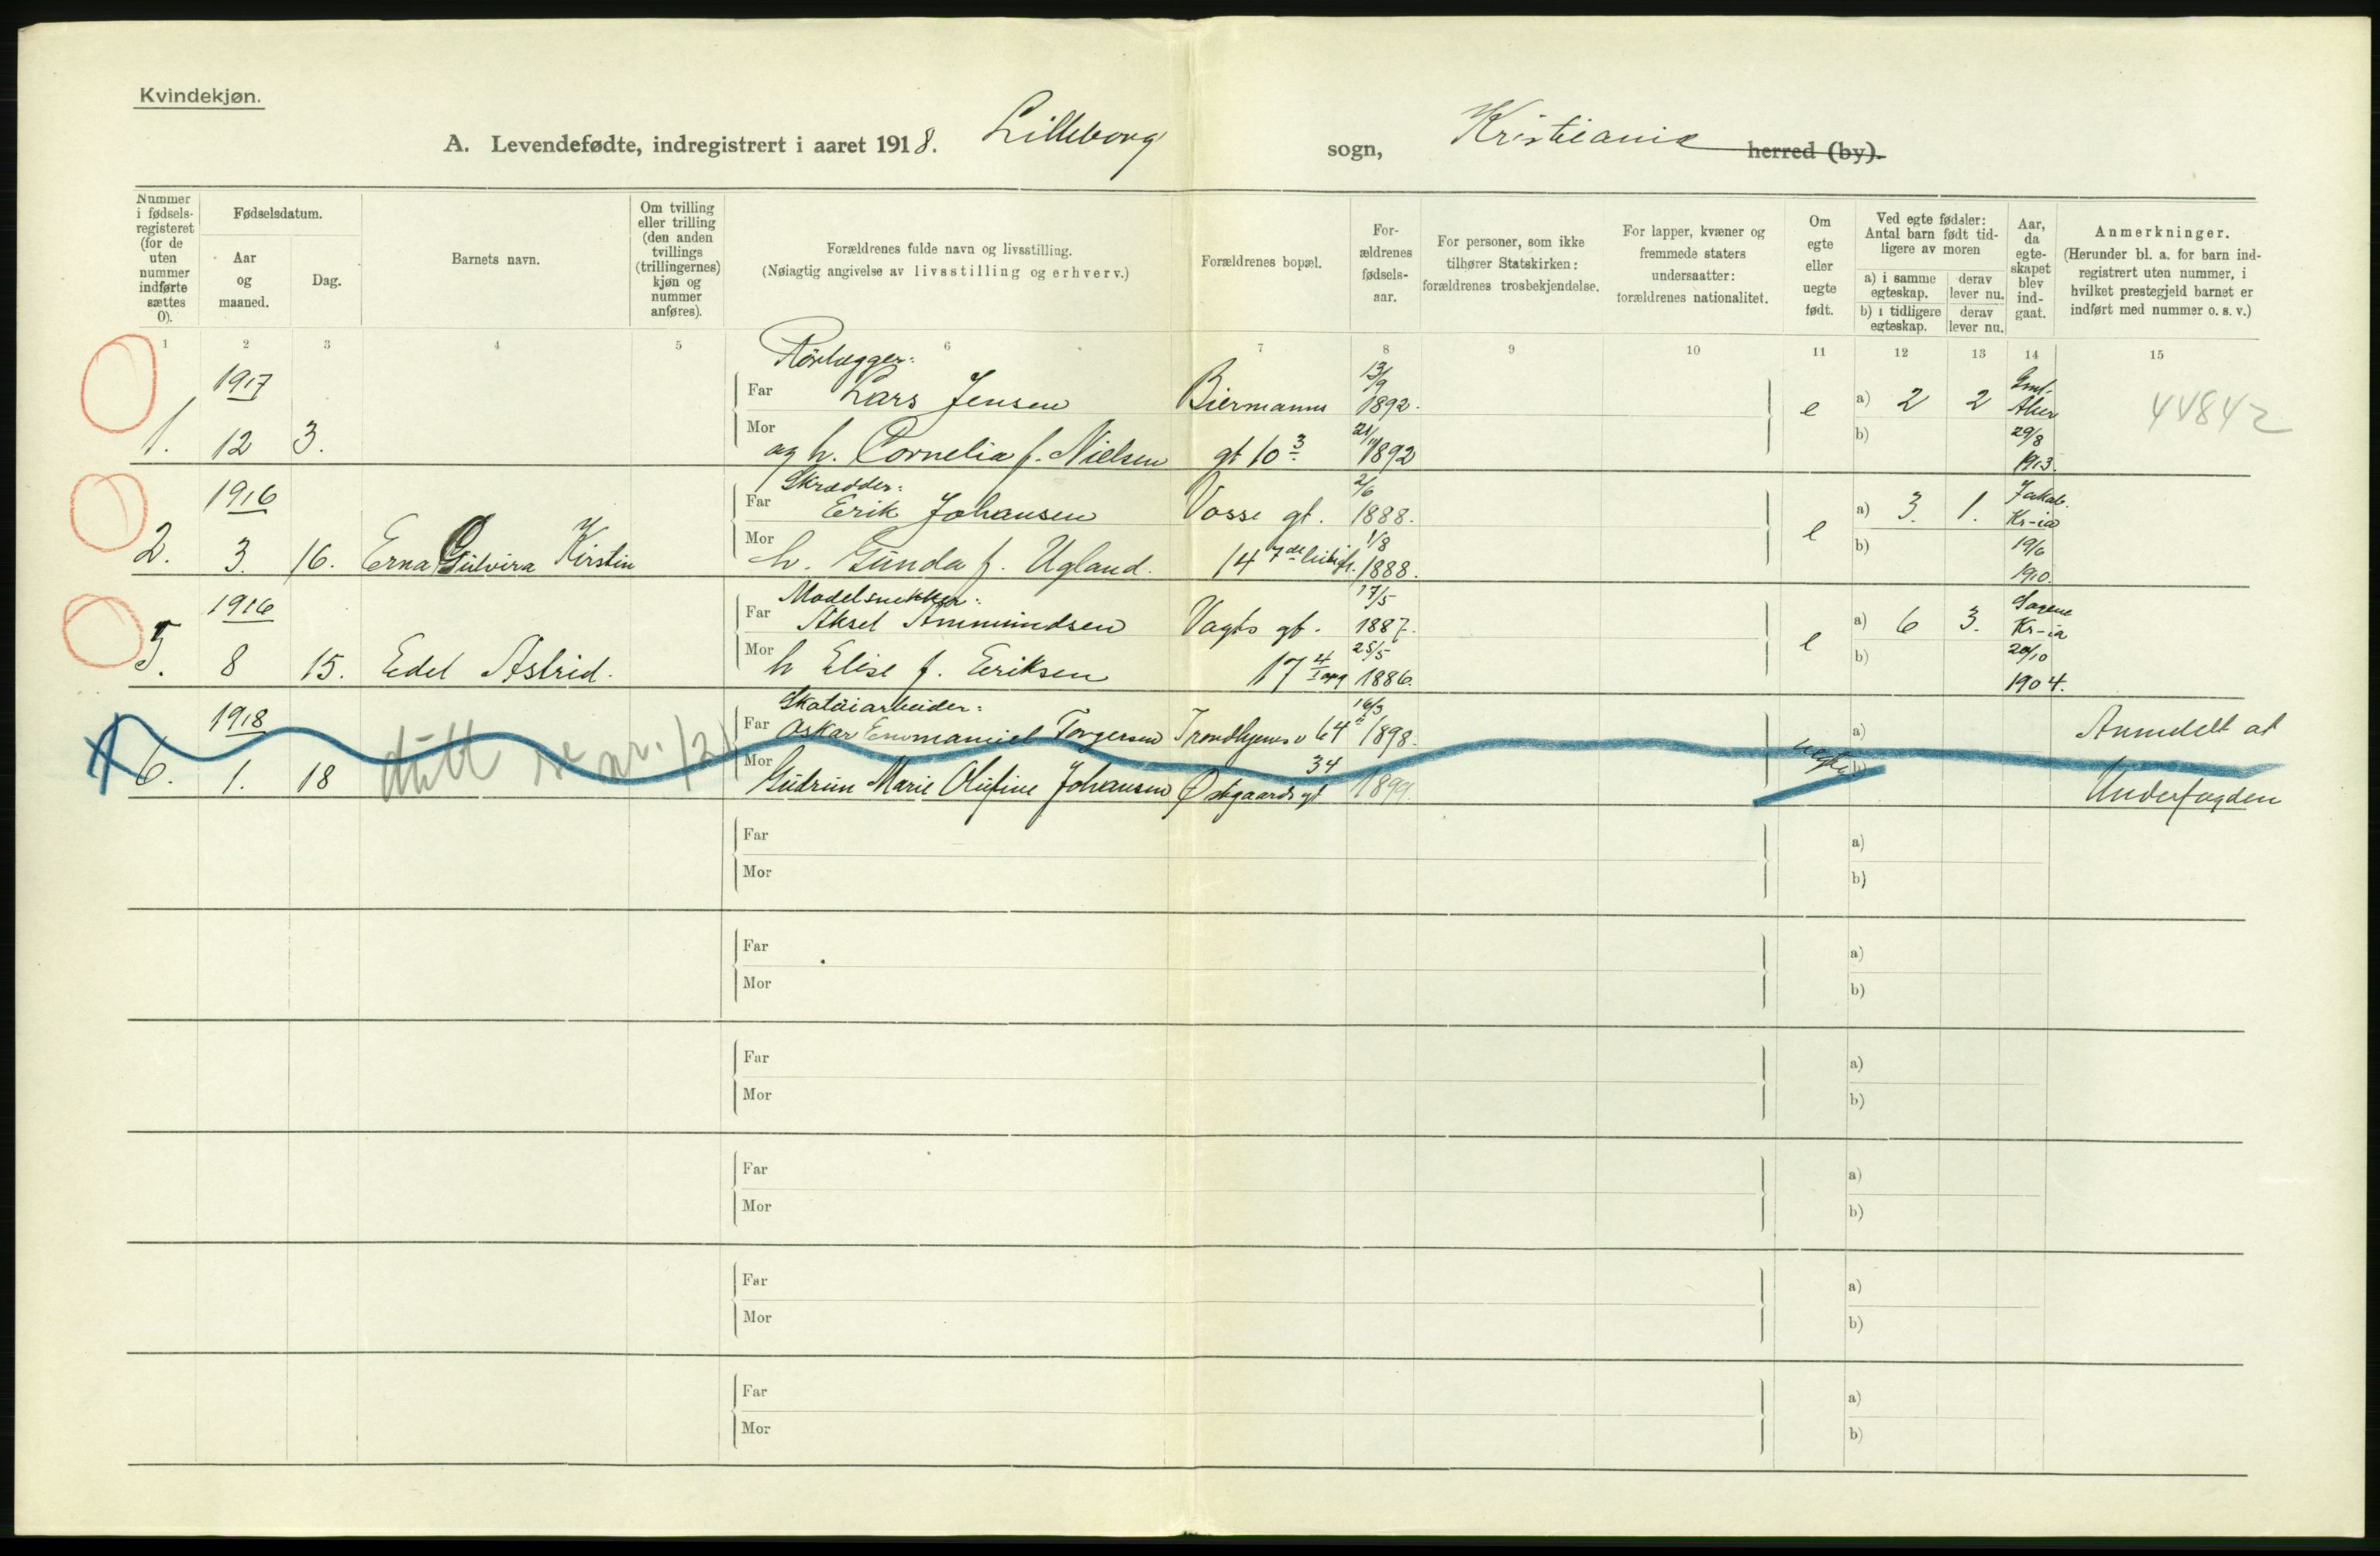 Kvindekjøn.
A. Levendefødte, indregistrert i aaret 1918. Lilleborg sogn, Kristiania herred (by).
Nummer i fødsels-registeret (for de uten nummer indførte sættes 0).
Fødselsdatum.
Aar og maaned.
Dag.
Barnets navn.
Om tvilling eller trilling (den anden tvillings (trillingernes) kjøn og nummer anføres).
Forældrenes fulde navn og livsstilling.
(Nøiagtig angivelse av livsstilling og erhverv.)
Forældrenes bopæl.
For-ældrenes fødsels-aar.
For personer, som ikke tilhører Statskirken: forældrenes trosbekjendelse.
For lapper, kvæner og fremmede staters undersaatter: forældrenes nationalitet.
Om egte eller uegte født.
Ved egte fødsler: Antal barn født tid-ligere av moren
a) i samme egteskap.
derav lever nu.
b) i tidligere egteskap.
derav lever nu.
Aar, da egte-skapet blev ind-gaat.
Anmerkninger.
(Herunder bl. a. for barn ind-registrert uten nummer, i hvilket prestegjeld barnet er indført med nummer o. s. v.)
1 2 3 4 5 6 7 8 9 10 11 12 13 14 15
Rörlægger:
1917 Far Lars Jensen Biermanns 13/9 1892. e a) 2 2 Aker 44842
1. 12 3. Mor og h. Cornelia f. Nielsen gt 10 3 21/11 1892 b) 29/8 1913.
Skrædder:
1916 Far Erik Johansen Vosse gt. 2/6 1888. e a) 3. 1. Jakob. Kr-ia
2. 3. 16. Erna Gulvira Kirstin Mor h. Gunda f. Ugland. 14 1/8 1888. b) 19/6 1910.
Modelsnekker:
1916 Far Aksel Ammundsen Vagts gt. 17/5 1887. e a) 6 3. Sagene Kr-ia
5. 8 15. Edel Astrid. Mor h Elise f. Eriksen 17 4 opg 25/5 1886. b) 20/10 1904.
Skotöiarbeider:
1918 Far Oskar Emmanuel Torgersen Trondhjemsv 64 16/3 1898. uegte a) Anmeldt at
6. 1. 18 se nr. 12 Mor Gudrun Marie Olufine Johansen Østgaards gt 34 1899. b) Underfogden
Far a)
Mor b)
Far a)
Mor b)
Far a)
Mor b)
Far a)
Mor b)
Far a)
Mor b)
Far a)
Mor b)